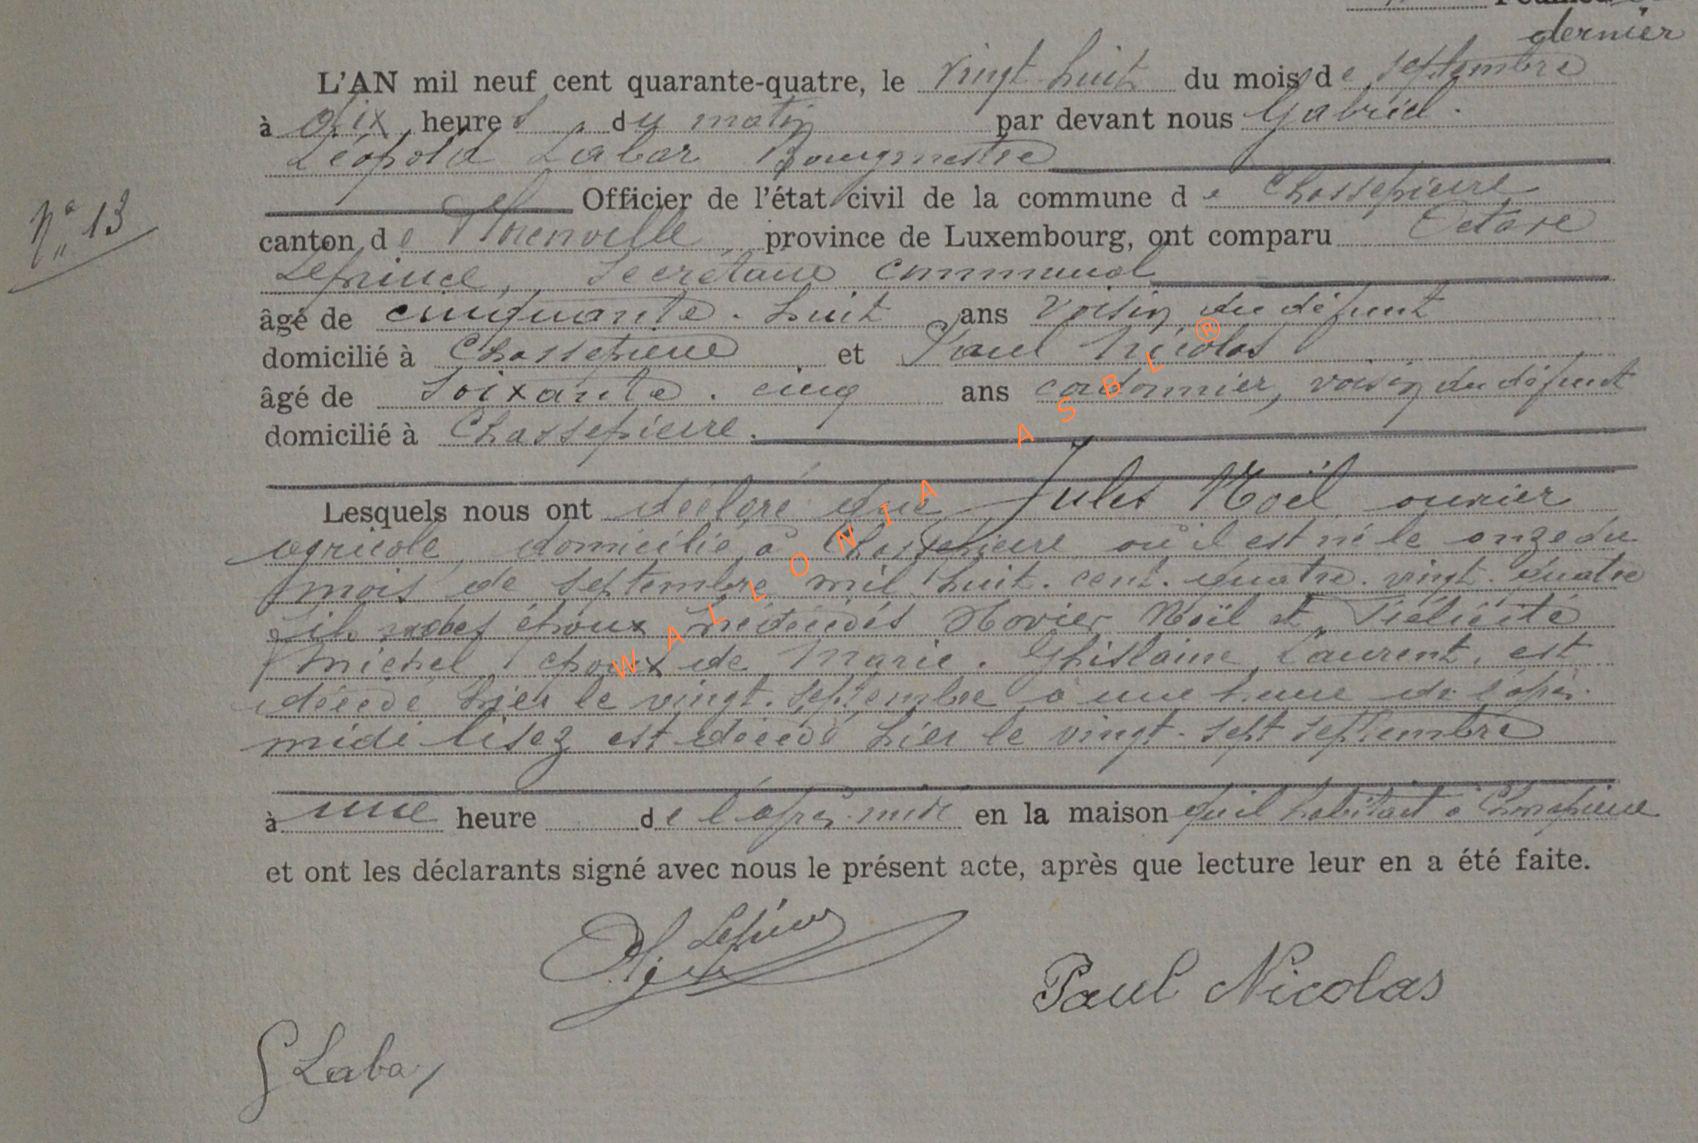 dernier
L'AN mil neuf cent quarante-quatre, le vingt huit du mois de septembre
à dix heures du matin par devant nous Gabriel
Léopold Labar Bourgmestre
Officier de l'état civil de la commune de Chassepierre
N° 13
canton de Florenville province de Luxembourg, ont comparu Octave
Leprince, secrétaire communal
âgé de cinquante-huit ans voisin du défunt
domicilié à Chassepierre et Paul Nicolas
âgé de soixante-cinq ans cordonnier, voisin du défunt
domicilié à Chassepierre.
Lesquels nous ont déclaré que Jules Noël ouvrier
agricole, domicilié à Chassepierre où il est né le onze du
mois de septembre mil huit-cent-quatre-vingt-quatre
fils des époux décédés Xavier Noël et Félicité
Michel, époux de Marie-Ghislaine Laurent, est
décédé hier le vingt-septembre à une heure de l'après-
midi lisez est décédé hier le vingt-sept septembre
à une heure de l'après-midi en la maison qu'il habitait à Chassepierre
et ont les déclarants signé avec nous le présent acte, après que lecture leur en a été faite.
Paul Nicolas
G Labar
WALLONIA ASBL ®